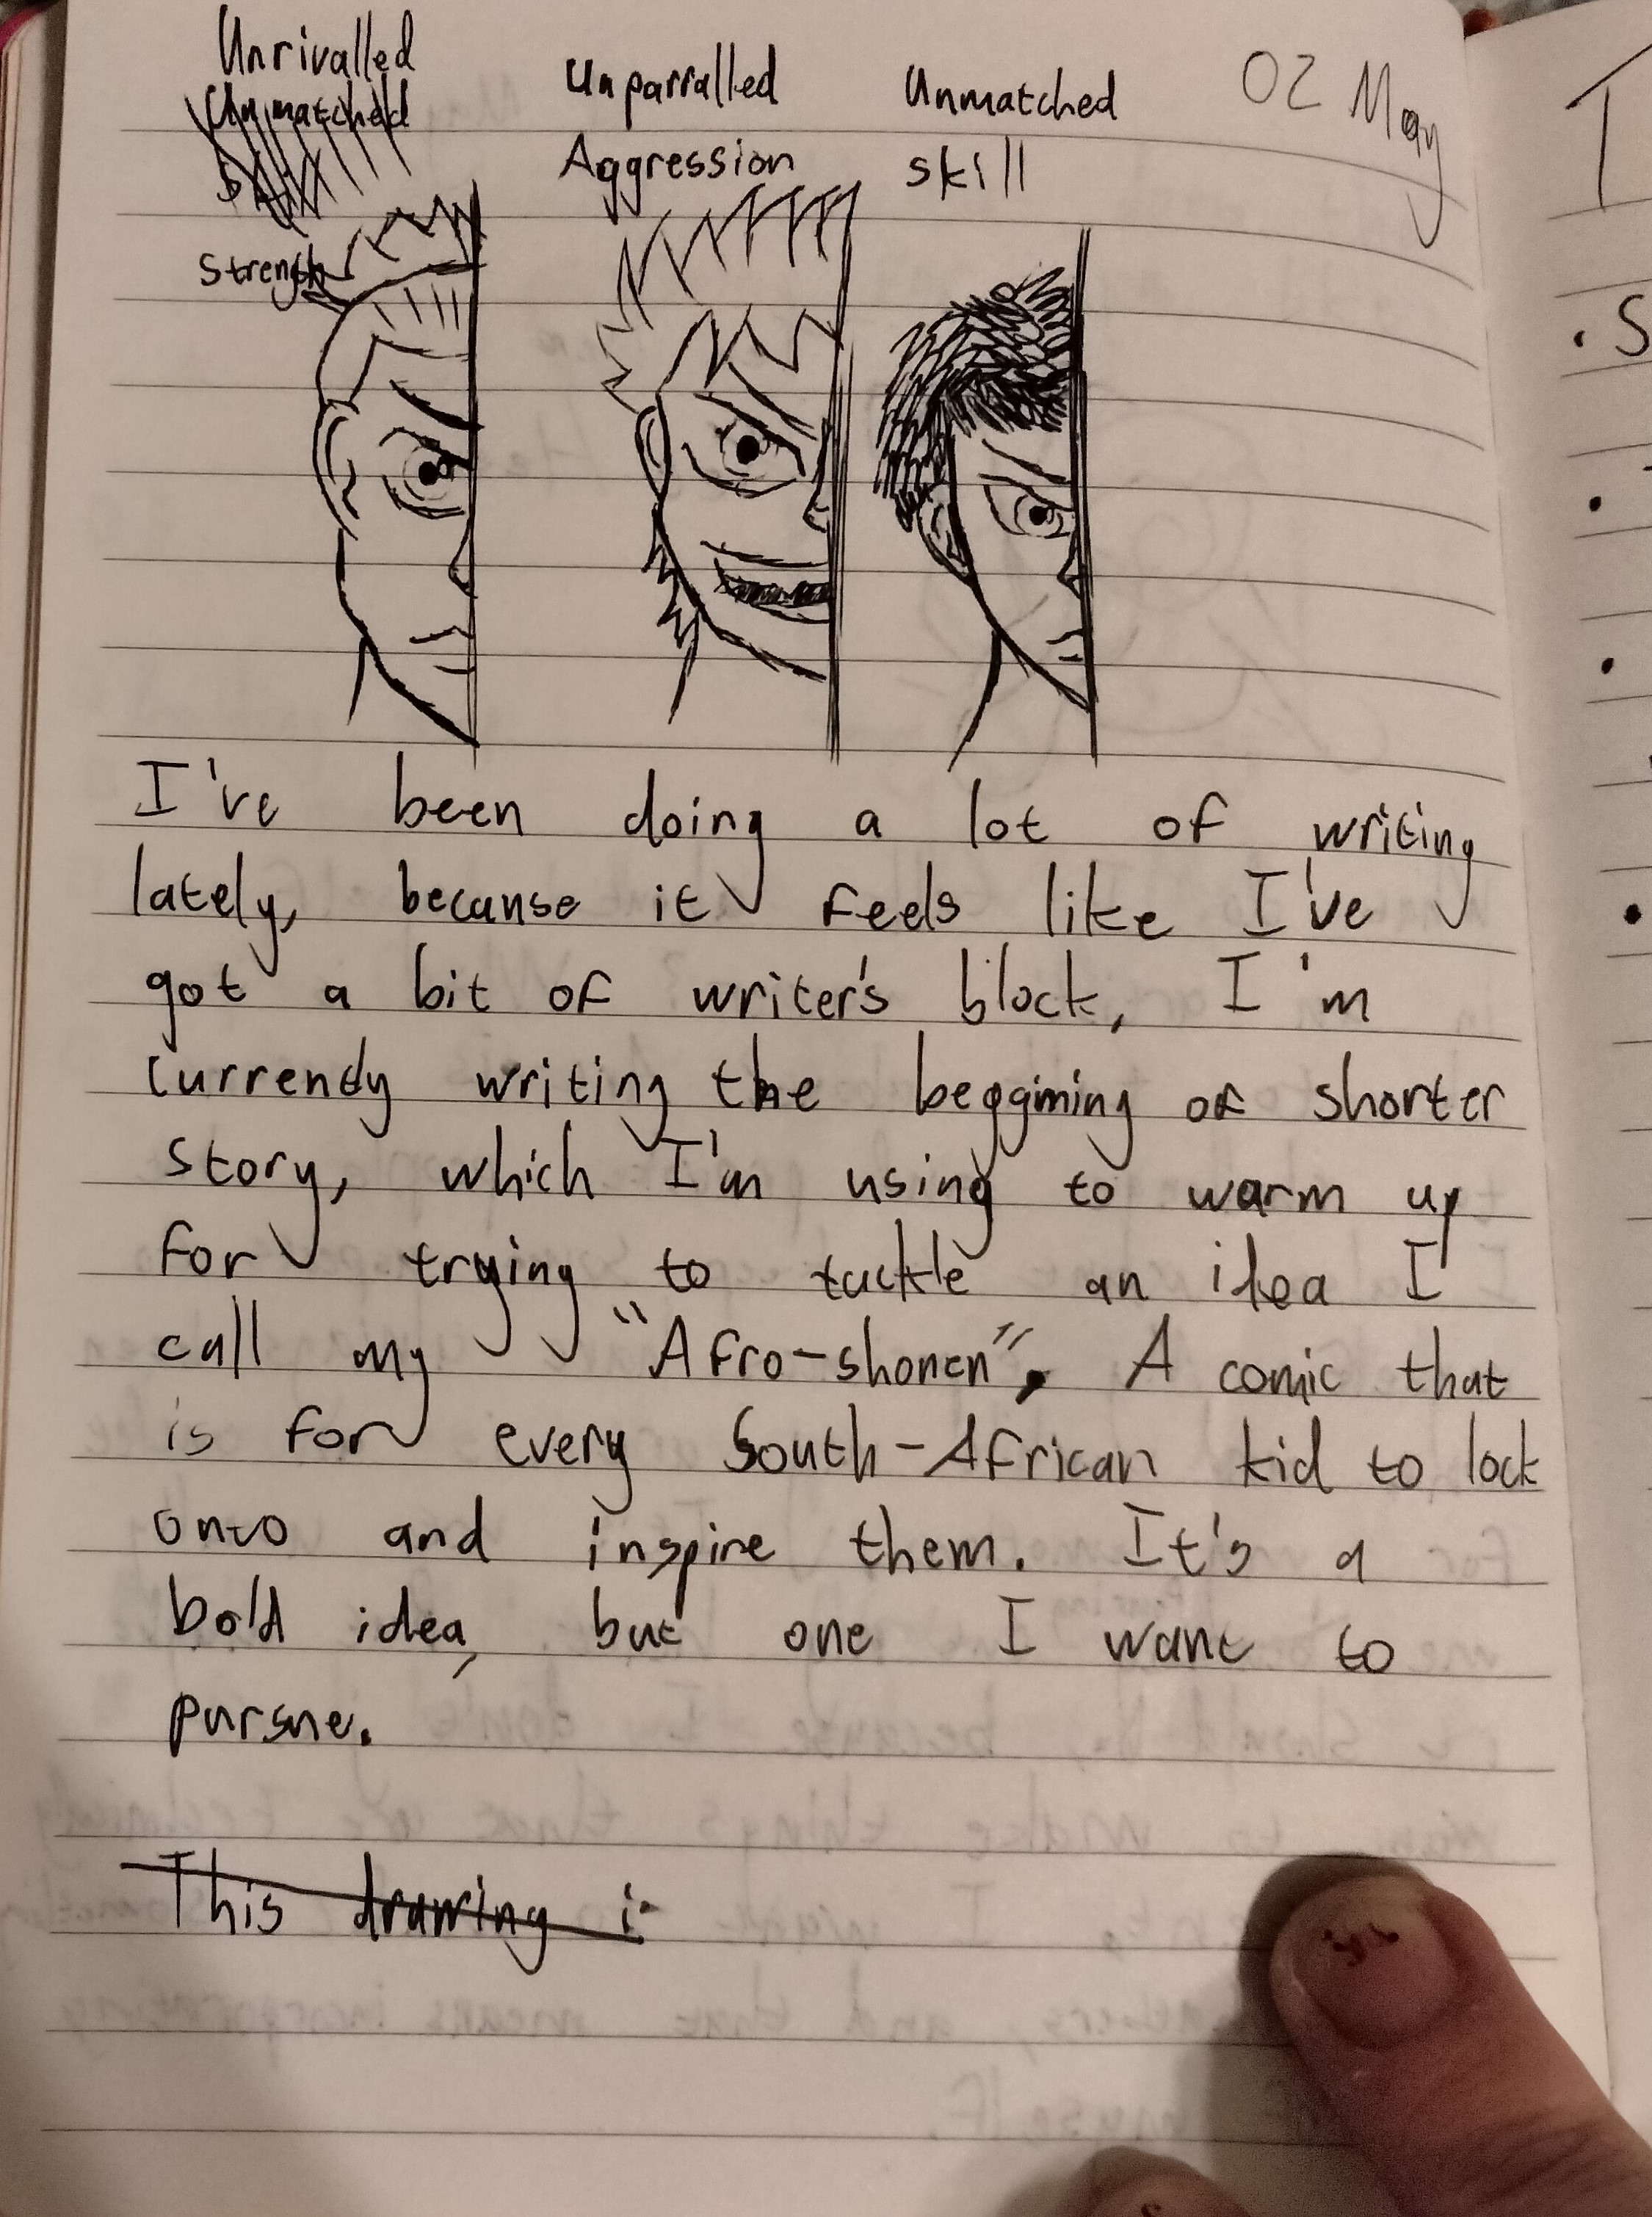 Unrivalled
Strength
Unparralled
Aggression
Unmatched
skill
02 May
I've been doing a lot of writing
lately, because it feels like I've
got a bit of writer's block, I'm
currently writing the beggining of shorter
story, which I'm using to warm up
for trying to tackle an idea I
call my "Afro-shonen". A comic that
is for every South-African kid to lock
onto and inspire them. It's a
bold idea, but one I want to
pursue.
This drawing i